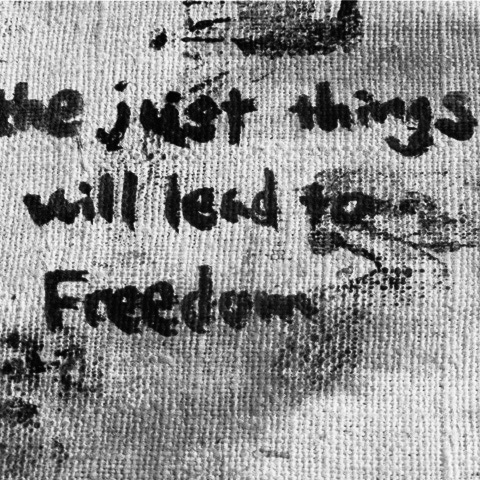 the just things
will lead to
Freedom